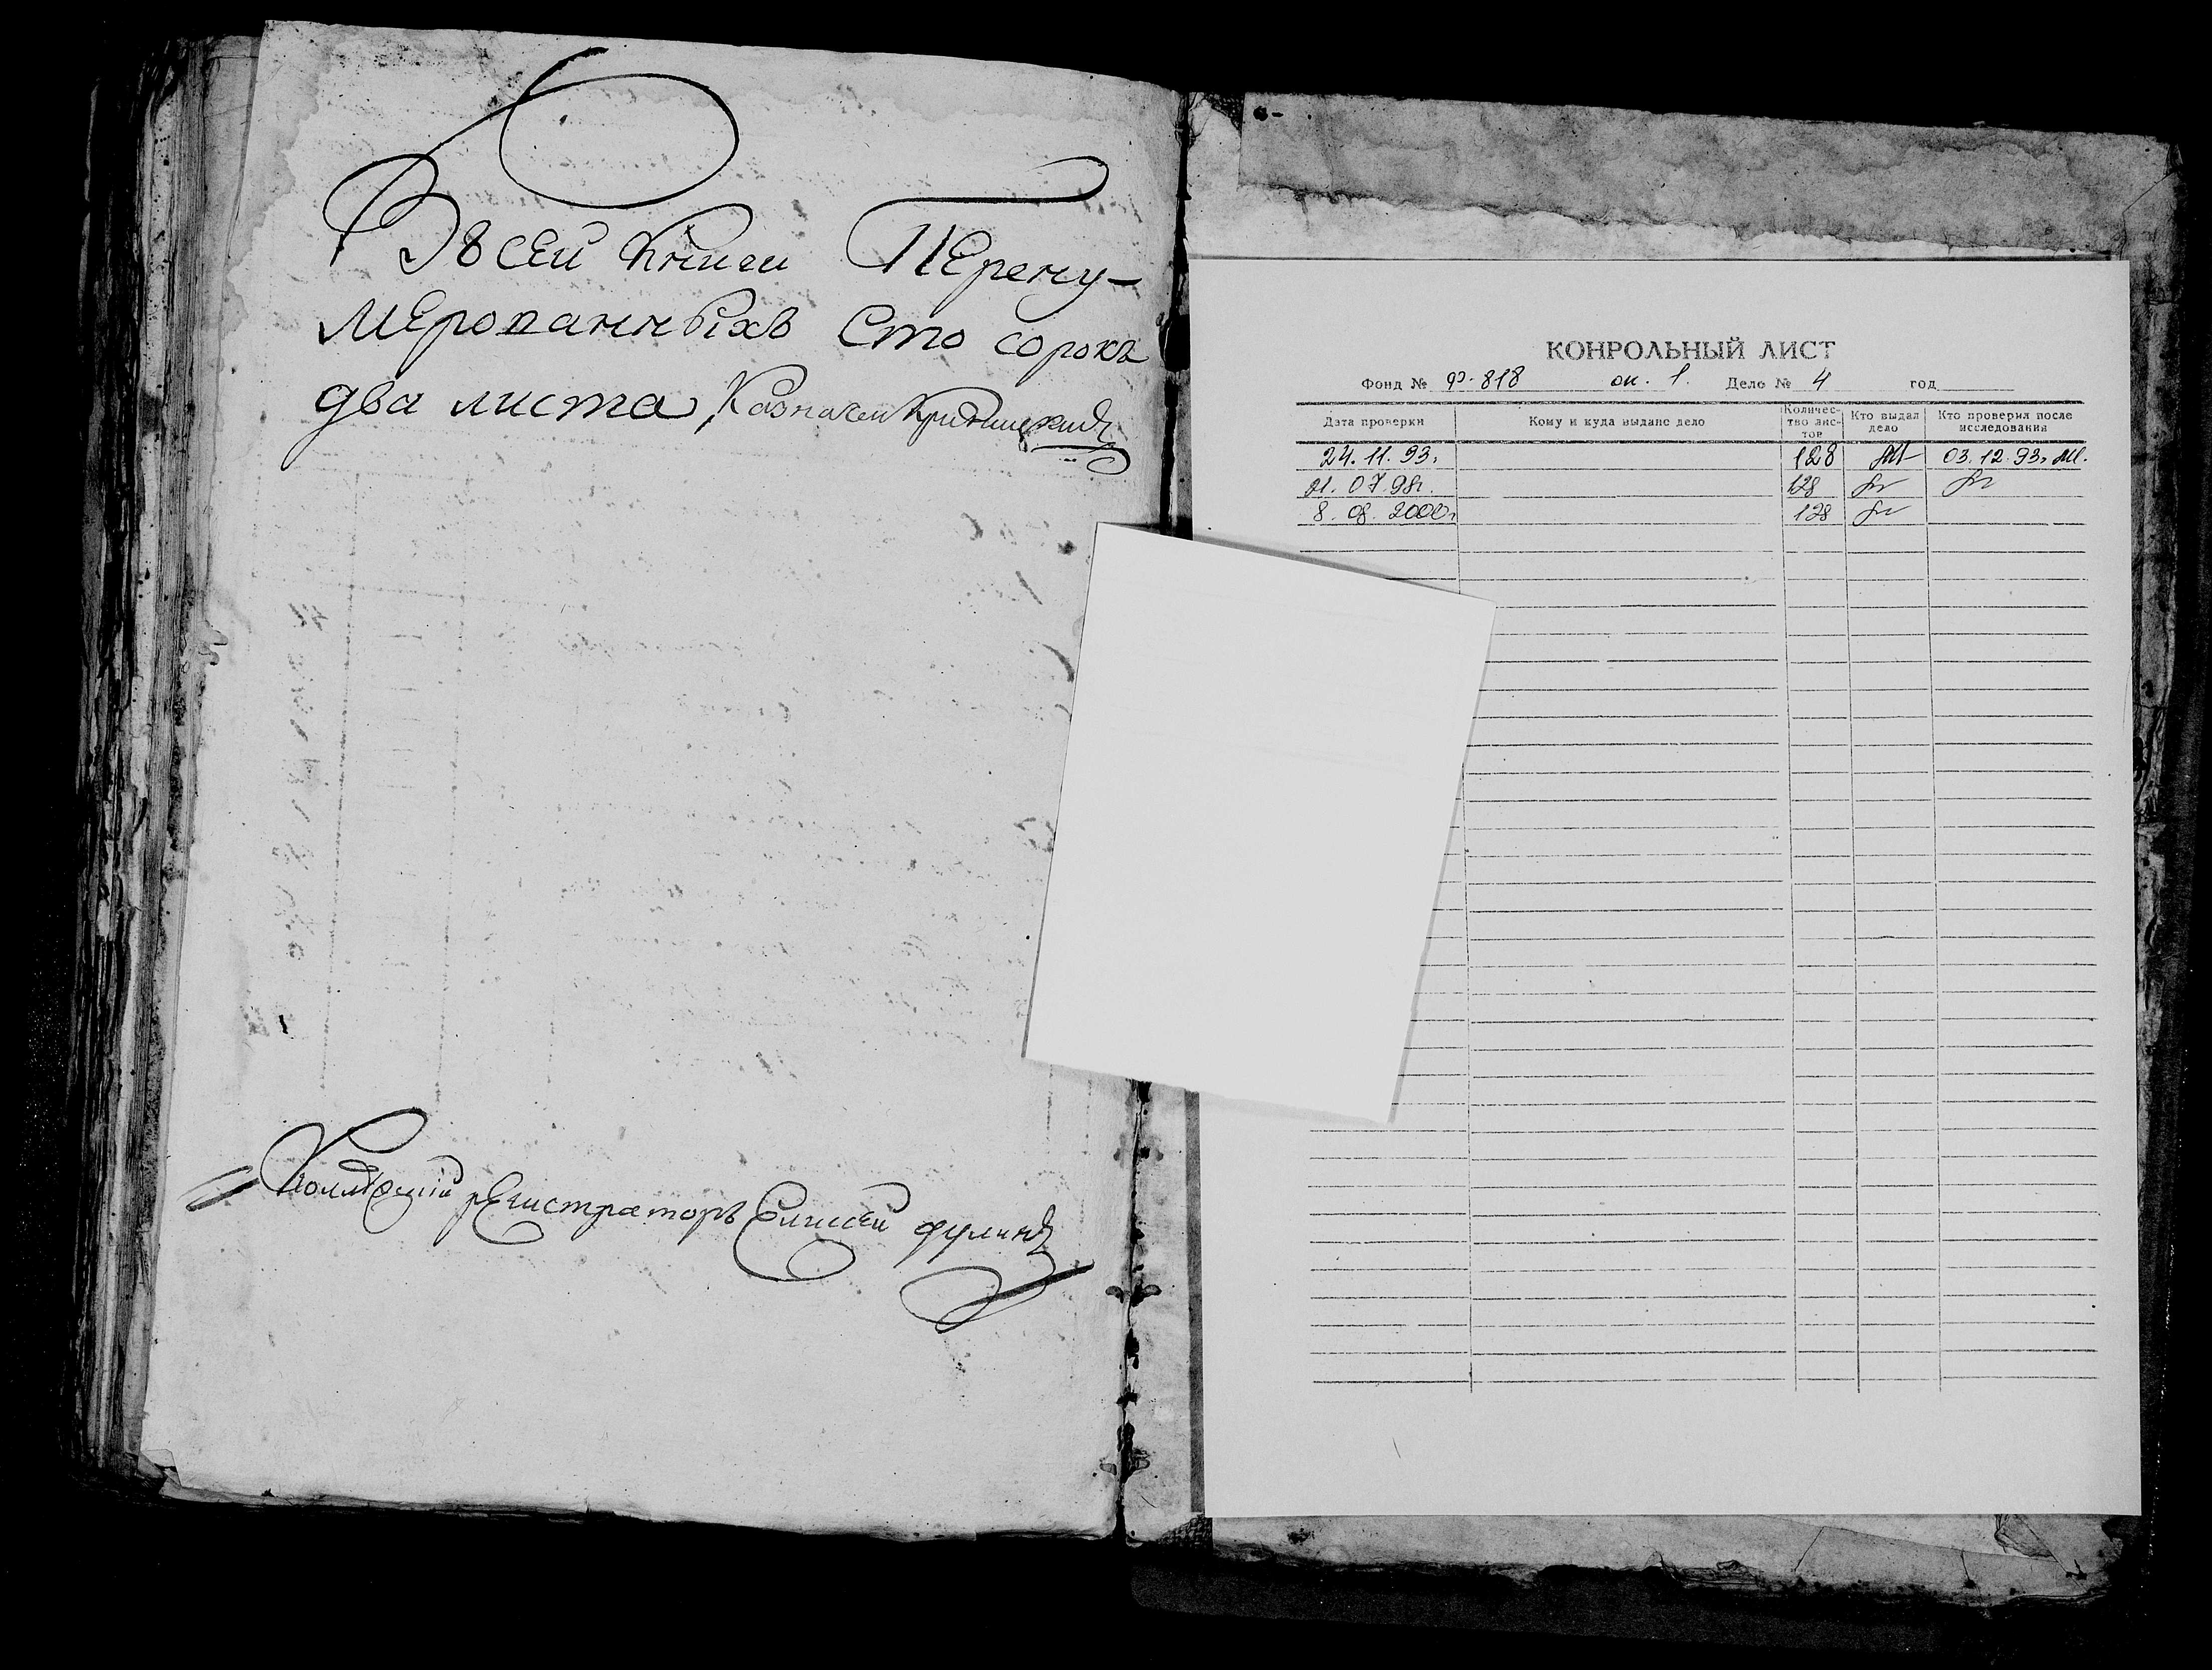 Въ сей книги Перену-
мерованныхъ Сто сорокъ
два листа, Казначей
Коллежский регистраторъ Елисей
КОНРОЛЬНЫЙ ЛИСТ
Фонд № ф-818 оп. 1. Дело № 4 год
Дата проверки Кому и куда выдано дело Количес-тво лис-тов Кто выдал дело Кто проверил после исследования
24.11.93. 128 03.12.93.
21.07.98г. 128
8.08.2000г 128